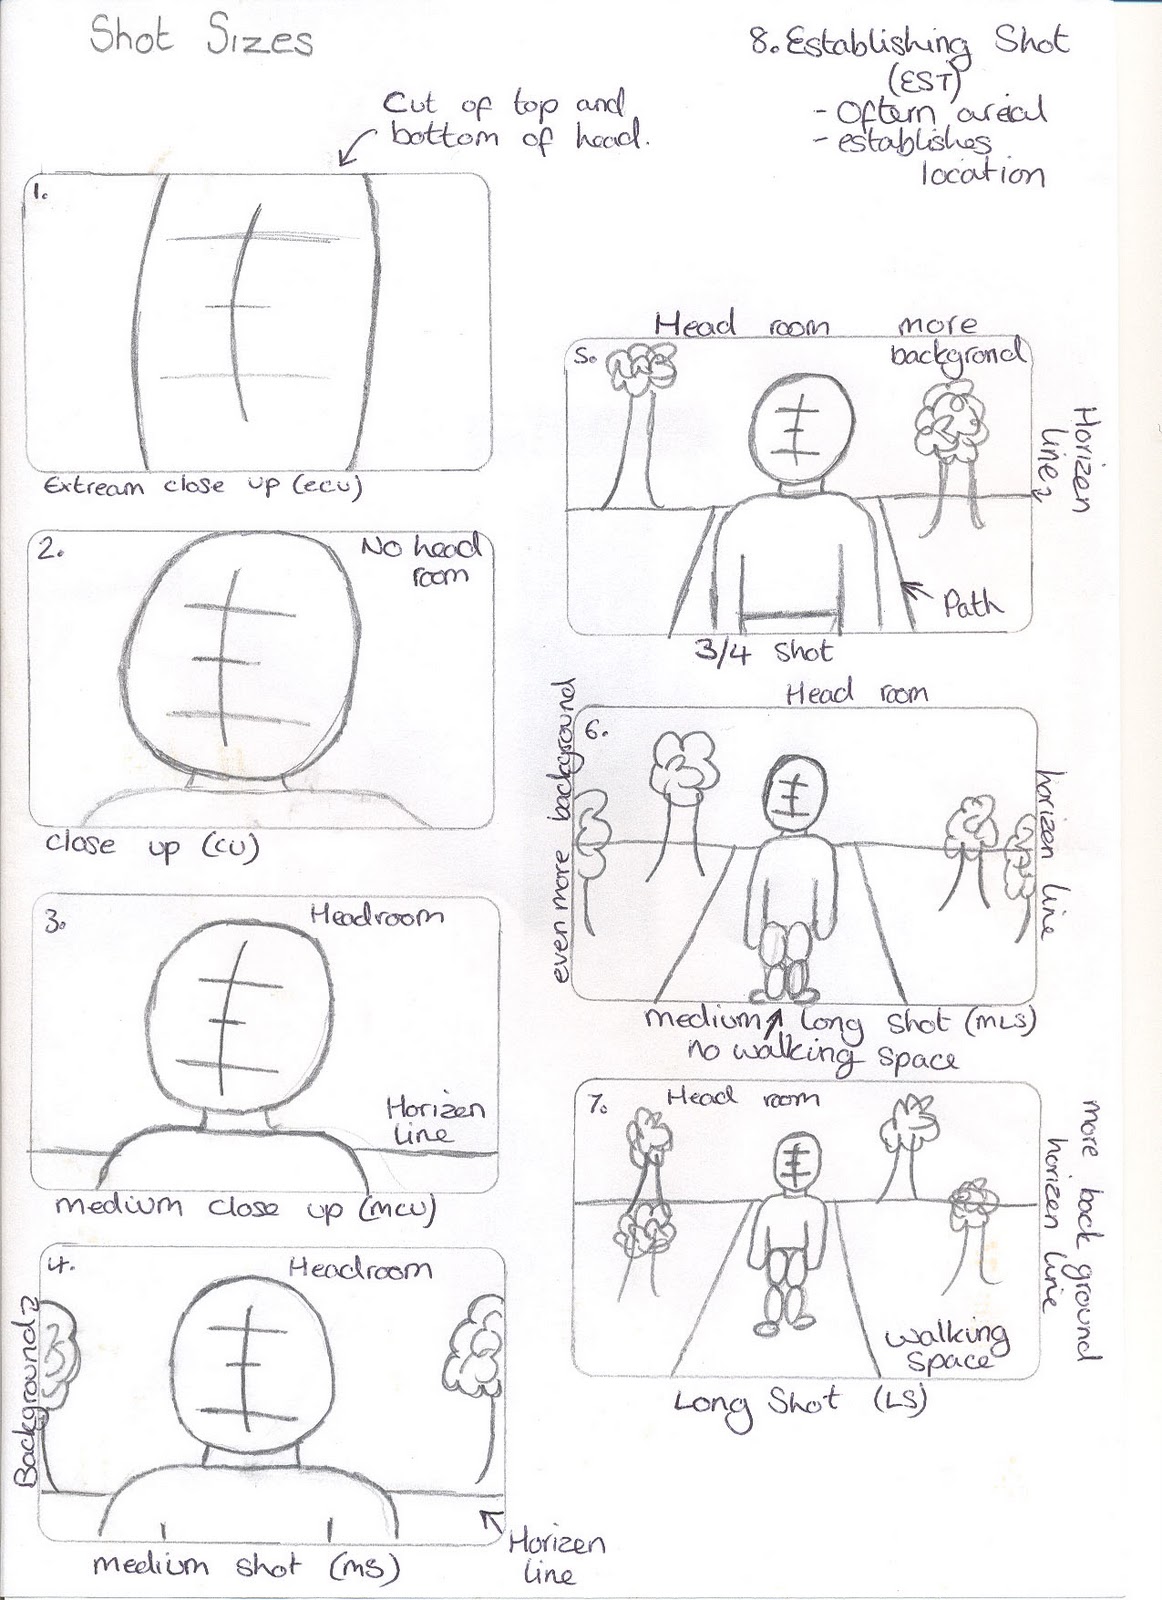 Shot Sizes
Cut of top and
bottom of head.
1.
Extream close up (ecu)
2.
No head
room
close up (CU)
3.
Headroom
Horizen
line
medium close up (mcu)
4.
Headroom
Background
Horizen
line
medium shot (ms)
8. Establishing Shot
(EST)
- Oftern areial
- establishes
location
Head room more
backgrond
5.
Horizen
line
Path
3/4 Shot
Head room
6.
even more background
horizen line
medium long shot (MLS)
no walking space
7.
Head room
more back ground
horizen line
walking
space
Long Shot (LS)